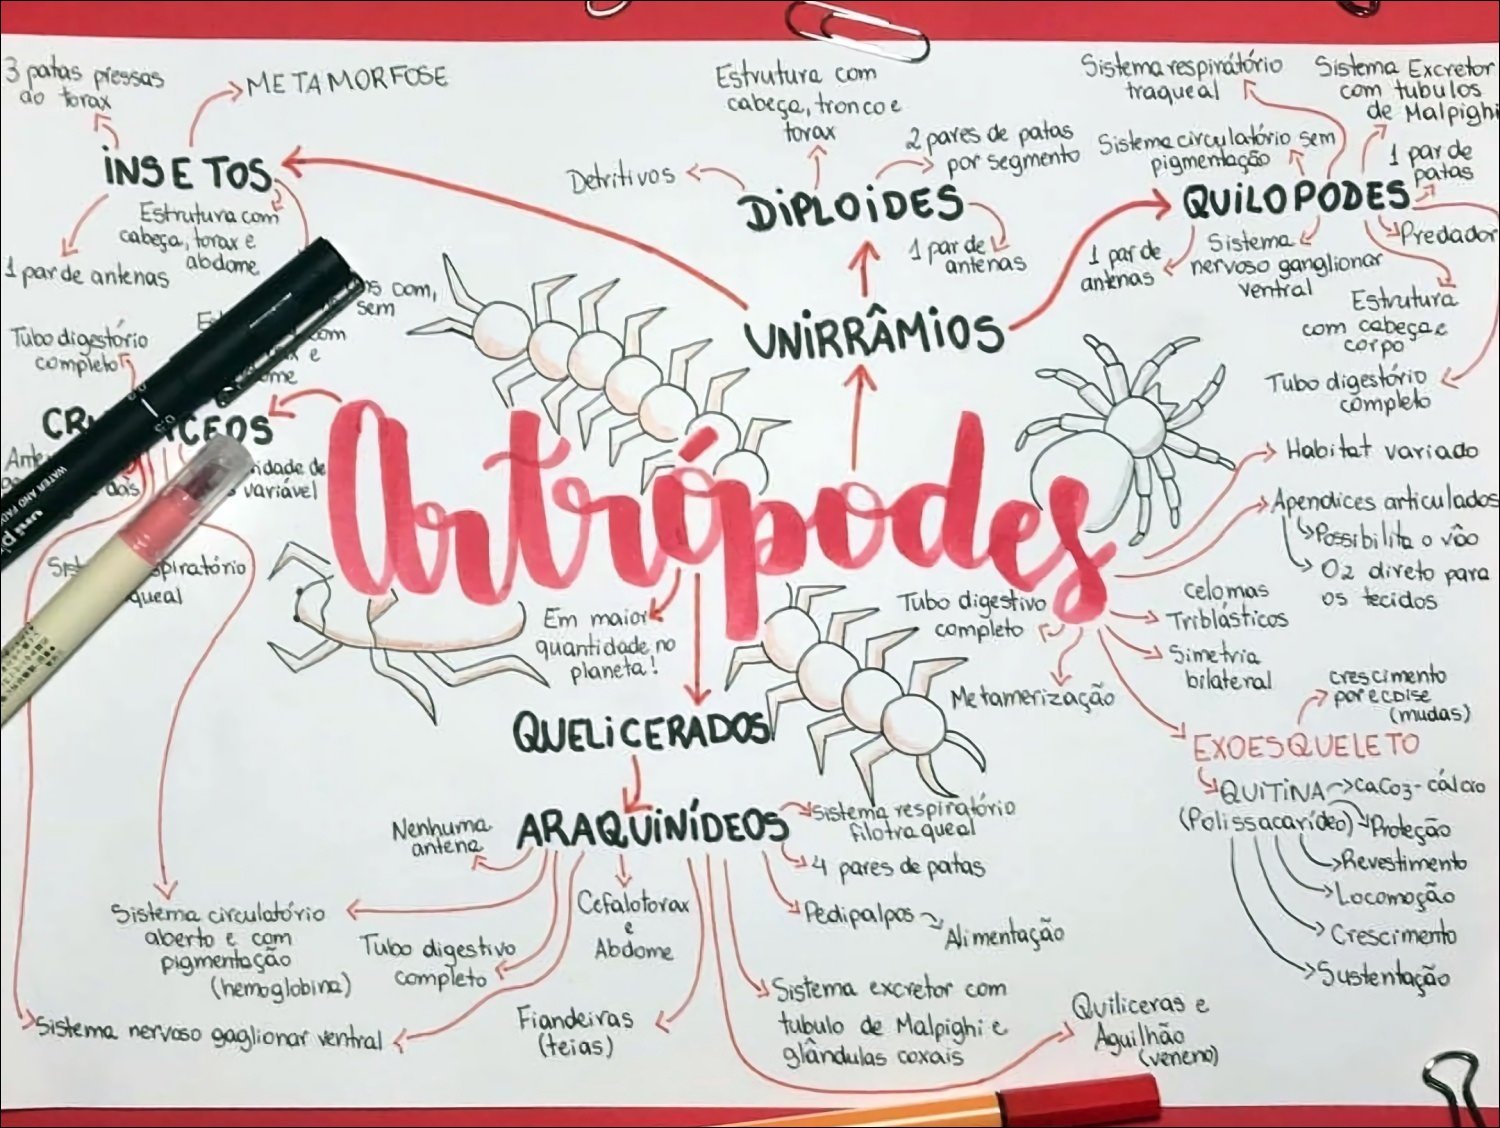 3 patas pressas
do torax
METAMORFOSE
INSETOS
Estrutura com
cabeça, torax e
abdome
1 par de antenas
Estrutura com
cabeça, tronco e
torax
Detritivos
2 pares de patas
por segmento
DIPLOIDES
1 par de
antenas
Sistema respirátório
traqueal
Sistema Excretor
com tubulos
de Malpighi
Sistema circulatório sem
pigmentação
1 par de
patas
QUILOPODES
Predador
1 par de
antenas
Sistema
nervoso ganglionar
ventral
Estrutura
com cabeça e
corpo
Tubo digestório
completo
UNIRRÂMIOS
com,
sem
Tubo digestório
completo
com
e
CEOS
idade de
variável
das
WATER AND
uni
piratório
queal
Artrópodes
Habitat variado
Apendices articulados
Possibilita o vôo
O2 direto para
os tecidos
celomas
Triblásticos
Simetria
bilateral
Tubo digestivo
completo
Metamerização
Em maior
quantidade no
planeta!
crescimento
por ecdise
(mudas)
EXOESQUELETO
QUITINA
CaCO3-cálcio
(Polissacarídeo)
Proteção
Revestimento
Locomoção
Crescimento
Sustentação
QUELICERADOS
ARAQUINÍDEOS
Nenhuma
antena
Sistema respiratório
filotraqueal
4 pares de patas
Pedipalpos
Alimentação
Cefalotorax
e
Abdome
Sistema circulatório
aberto e com
pigmentação
(hemoglobina)
Tubo digestivo
completo
Sistema nervoso gaglionar ventral
Fiandeiras
(teias)
Sistema excretor com
tubulo de Malpighi e
glândulas coxais
Quiliceras e
Aguilhão
(veneno)